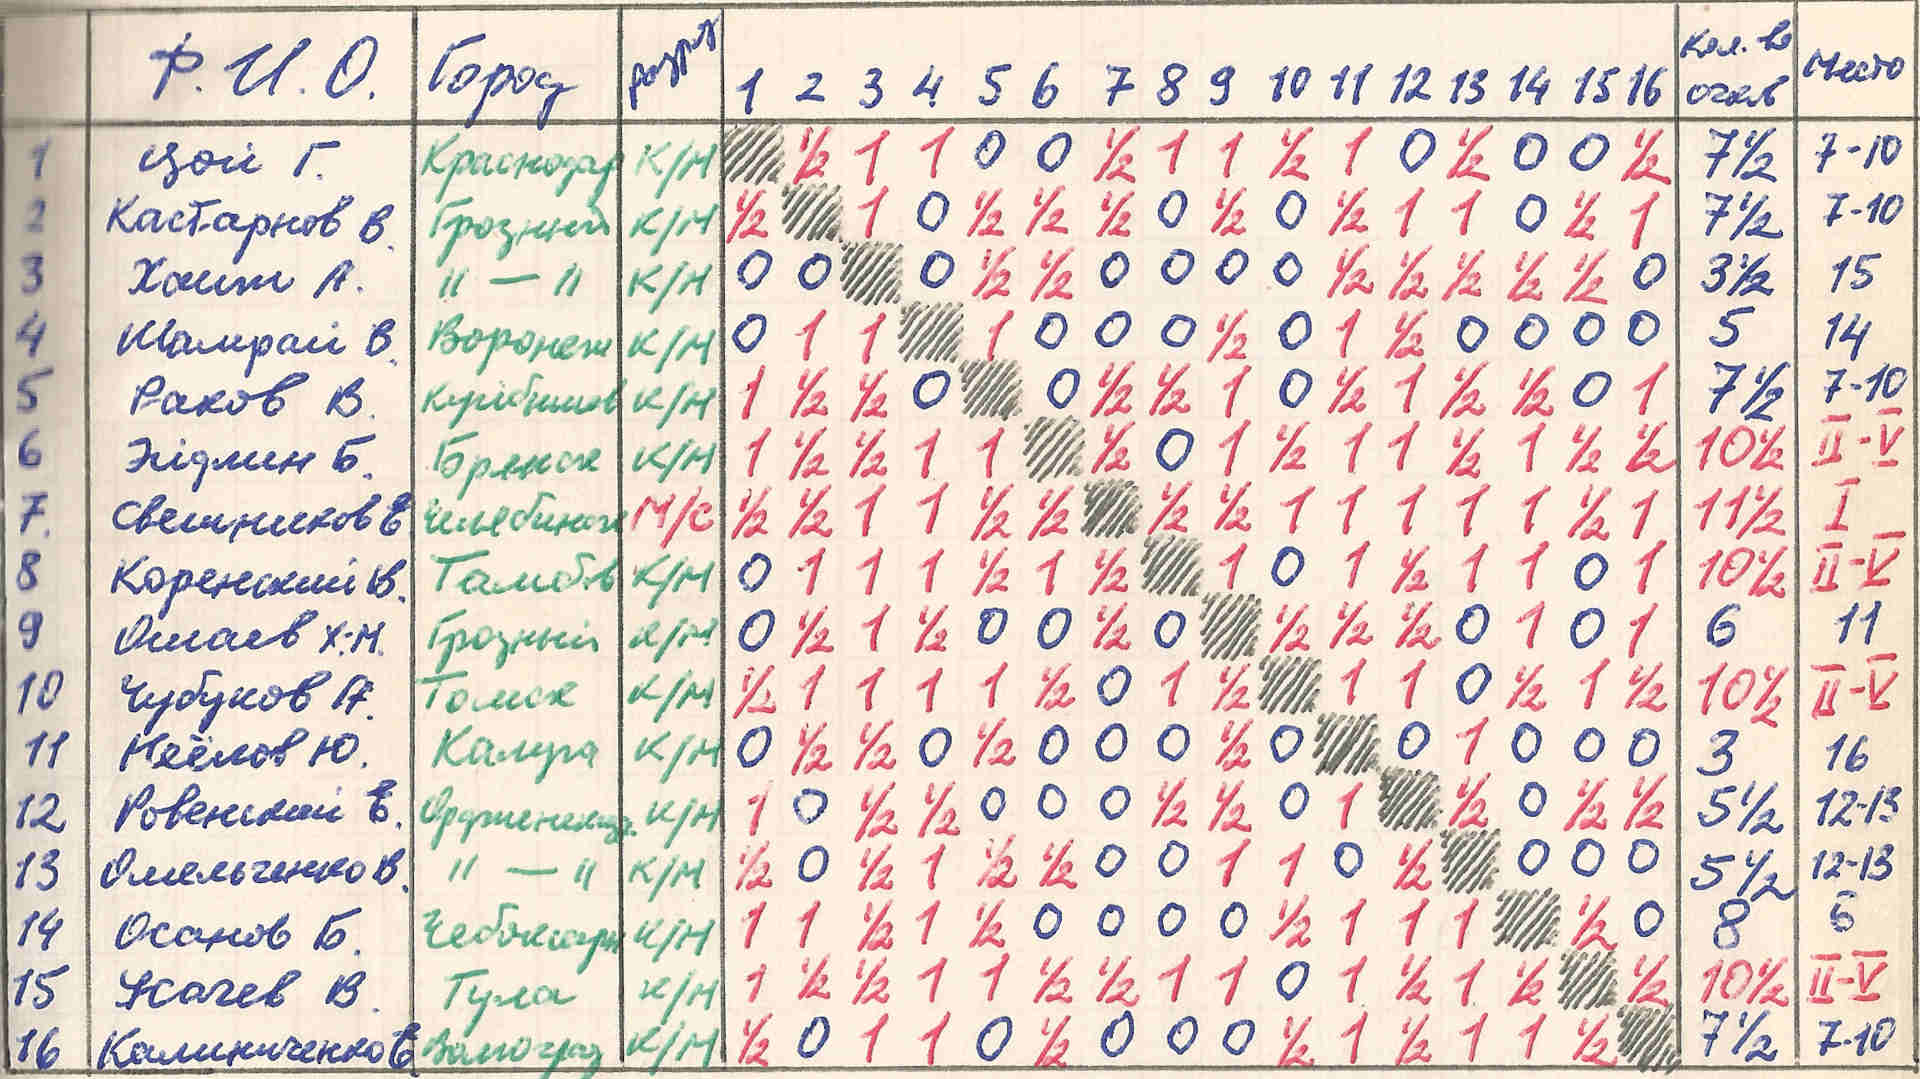 Ф. И. О. Город разряд 1 2 3 4 5 6 7 8 9 10 11 12 13 14 15 16 Кол. во очков Место
1 Цой Г. Краснодар К/М ½ 1 1 0 0 ½ 1 1 ½ 1 0 ½ 0 0 ½ 7½ 7-10
2 Кастарнов В. Грозный К/М ½ 1 0 ½ ½ ½ 0 ½ 0 ½ 1 1 0 ½ 1 7½ 7-10
3 А. " — " К/М 0 0 0 ½ ½ 0 0 0 0 ½ ½ ½ ½ ½ 0 3½ 15
4 Шамрай В. Воронеж К/М 0 1 1 1 0 0 0 ½ 0 1 ½ 0 0 0 0 5 14
5 Раков В. Куйбышев К/М 1 ½ ½ 0 0 ½ ½ 1 0 ½ 1 ½ ½ 0 1 7½ 7-10
6 Эйдлин Б. Брянск К/М 1 ½ ½ 1 1 ½ 0 1 ½ 1 1 ½ 1 ½ ½ 10½ II-V
7. Свешников Е Челябинск М/С ½ ½ 1 1 ½ ½ ½ ½ 1 1 1 1 1 ½ 1 11½ I
8 Коренский В. Тамбов К/М 0 1 1 1 ½ 1 ½ 1 0 1 ½ 1 1 0 1 10½ II-V
9 Ошаев Х-М. Грозный К/М 0 ½ 1 ½ 0 0 ½ 0 ½ ½ ½ 0 1 0 1 6 11
10 Чубуков А. Томск К/М ½ 1 1 1 1 ½ 0 1 ½ 1 1 0 ½ 1 ½ 10½ II-V
11 Неёлов Ю. Калуга К/М 0 ½ ½ 0 ½ 0 0 0 ½ 0 0 1 0 0 0 3 16
12 Ровенский Е. К/М 1 0 ½ ½ 0 0 0 ½ ½ 0 1 ½ 0 ½ ½ 5½ 12-13
13 Омельченко В. " — " К/М ½ 0 ½ 1 ½ ½ 0 0 1 1 0 ½ 0 0 0 5½ 12-13
14 Осанов Б. Чебоксары К/М 1 1 ½ 1 ½ 0 0 0 0 ½ 1 1 1 ½ 0 8 6
15 Усачев В. Тула К/М 1 ½ ½ 1 1 ½ ½ 1 1 0 1 ½ 1 ½ ½ 10½ II-V
16 Калиниченко Е Волгоград К/М ½ 0 1 1 0 ½ 0 0 0 ½ 1 ½ 1 1 ½ 7½ 7-10